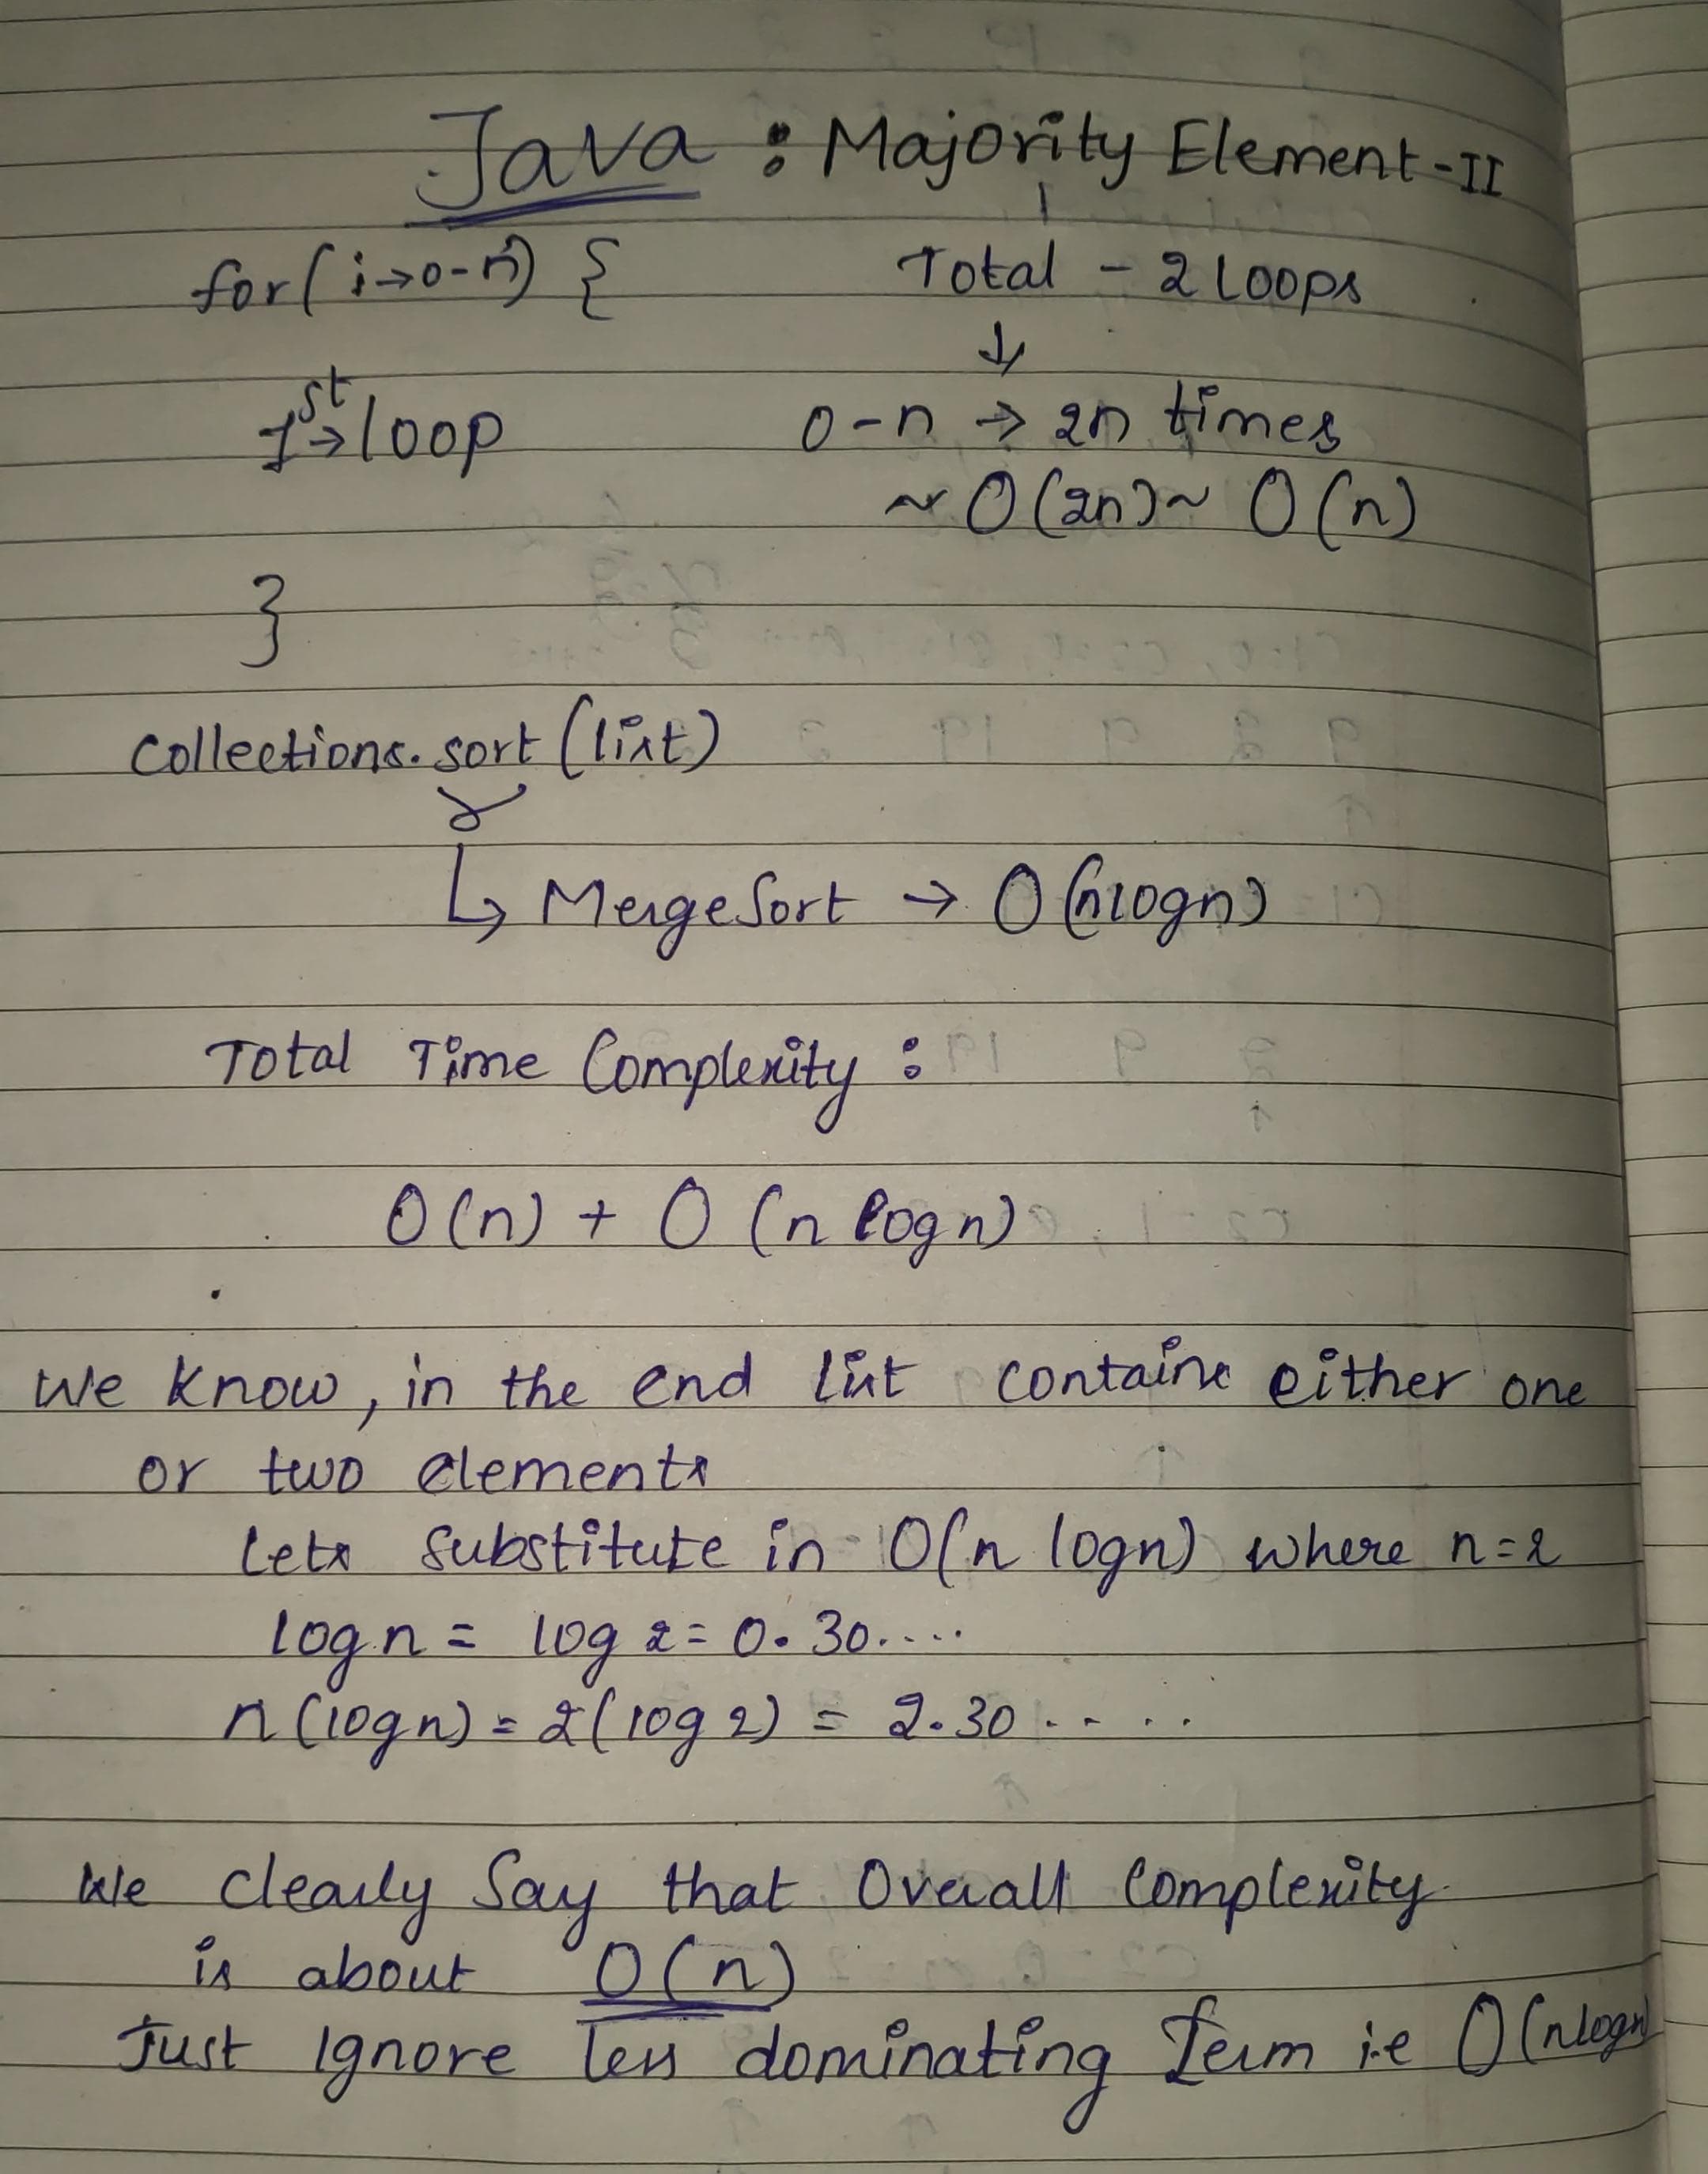 Java : Majority Element-II
for(i→0-n) {
Total - 2 loops
↓
1st→loop
0-n → 2n times
~ O(2n) ~ O(n)
}
Collections.sort(list)
↳ MergeSort → O(nlogn)
Total Time Complexity :
O(n) + O(n logn)
We know, in the end list contains either one
or two elements
Lets substitute in O(n logn) where n=2
logn = log 2 = 0.30....
n(logn) = 2(log 2) = 2.30.....
We clearly say that Overall Complexity
is about O(n)
Just Ignore less dominating Term i.e O(nlogn)